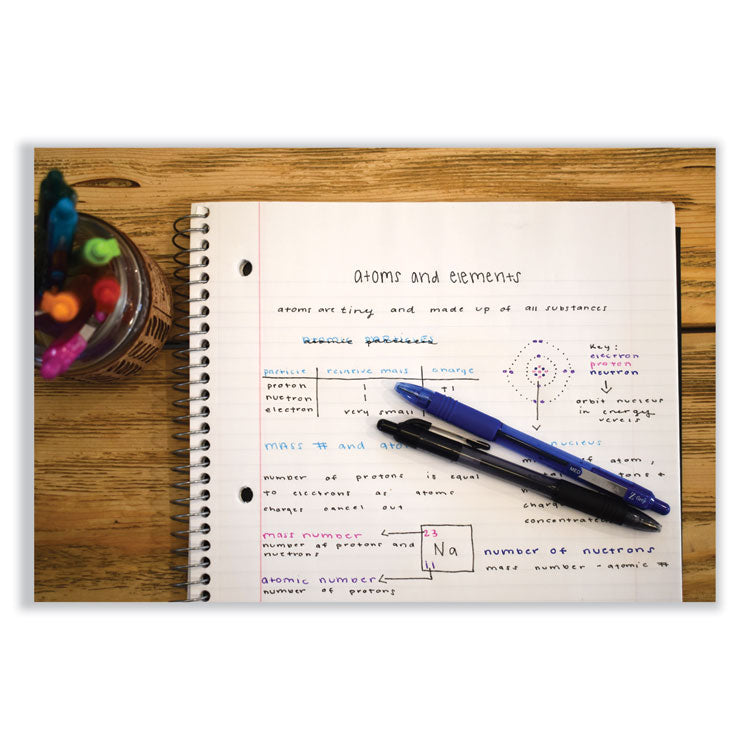 atoms and elements
atoms are tiny and made up of all substances
atomic particles
particle relative mass charge
proton 1 +1
nuetron 1
electron very small
Key:
electron
proton
neutron
orbit nucleus
in energy
verels
mass # and
nucleus
of atom,
number of protons is equal
to electrons as atoms
charges cancel out
charge
concentrated
MED
Z-Grip
mass number
number of protons and
nuetrons
23
Na
11
atomic number
number of protons
number of nuetrons
mass number - atomic #